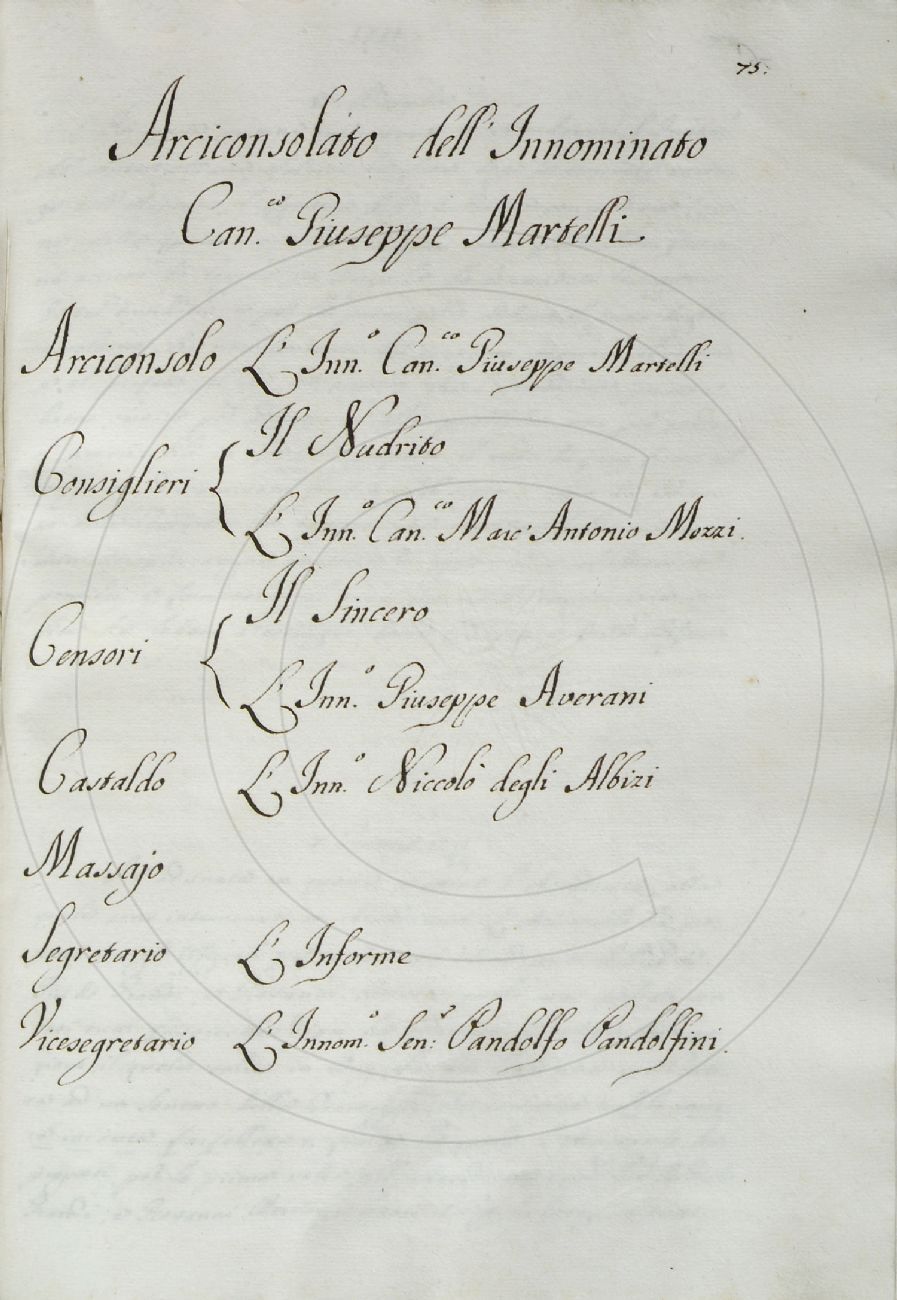 75.
Arciconsolato dell'Innominato
Can.co Giuseppe Martelli
Arciconsolo L'Inn.o Can.co Giuseppe Martelli
Consiglieri { Il Nudrito
L'Inn.o Can.co Marc'Antonio Mozzi.
Censori { Il Sincero
L'Inn.o Giuseppe Averani
Castaldo L'Inn.o Niccolò degli Albizi
Massajo
Segretario L'Informe
Vicesegretario L'Innom.o Sen.r Pandolfo Pandolfini.